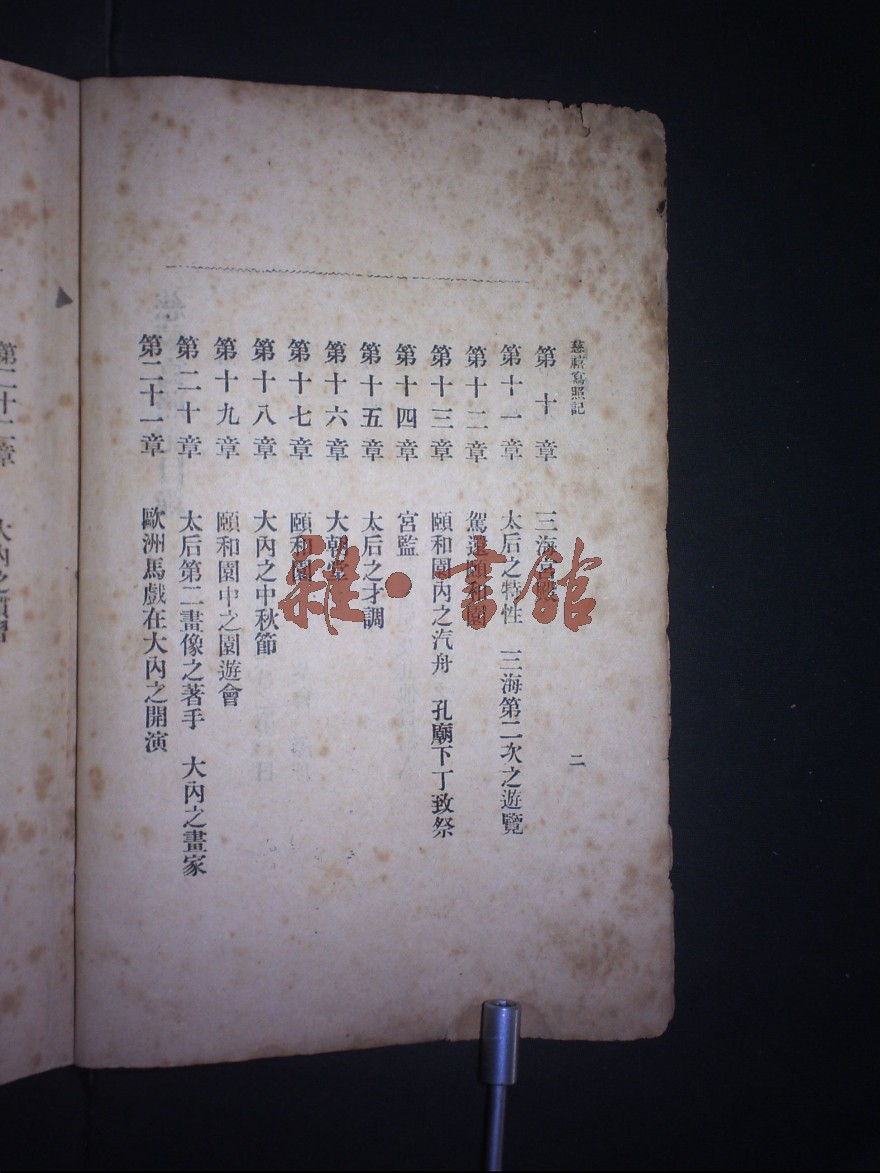 慈禧寫照記
二
第十章 三海
第十一章 太后之特性 三海第二次之遊覽
第十二章 駕還頤和園
第十三章 頤和園內之汽舟 孔廟下丁致祭
第十四章 宮監
第十五章 太后之才調
第十六章 大朝堂
第十七章 頤和園
第十八章 大內之中秋節
第十九章 頤和園中之園遊會
第二十章 太后第二畫像之著手 大內之畫家
第二十一章 歐洲馬戲在大內之開演
第二十二章 大內之
雜·書館